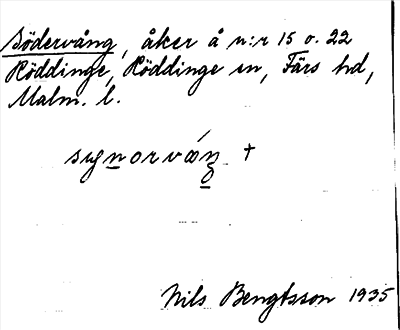 Södervång, åker å n:r 15 o. 22
Röddinge, Röddinge sn, Färs hd,
Malm. l.
†
Nils Bengtsson 1935